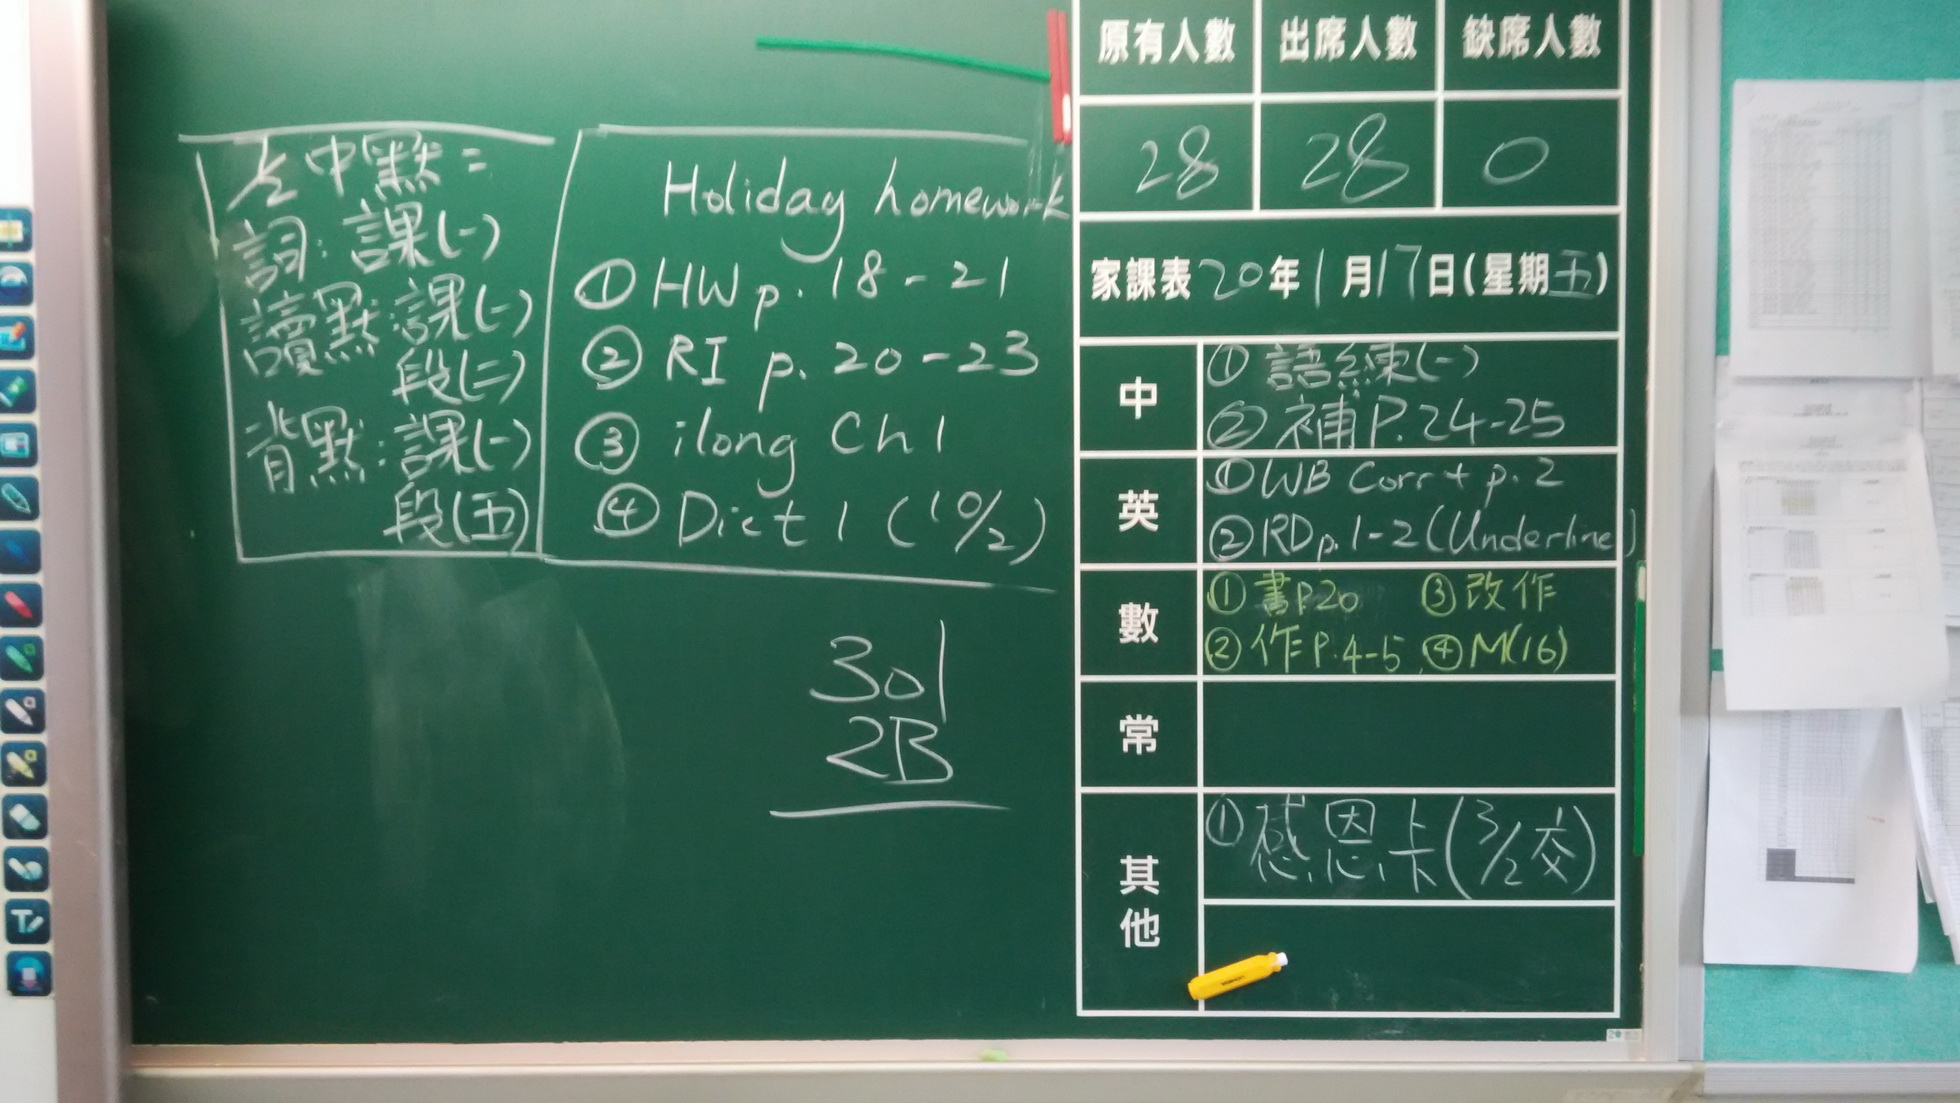 中默:
詞:課(一)
讀默:課(一)
段(二)
背默:課(一)
段(五)
Holiday homework
① HW p. 18-21
② RI p. 20-23
③ ilong Ch 1
④ Dict 1 (10/2)
301
2B
原有人數 出席人數 缺席人數
28 28 0
家課表20年1月17日(星期五)
中
① 語練(一)
② 補P.24-25
英
① WB Corr + p. 2
② RD p. 1-2 (Underline)
數
① 書P20 ③ 改作
② 作P.4-5 ④ M(16)
常
其他
① 感恩卡(3/2交)